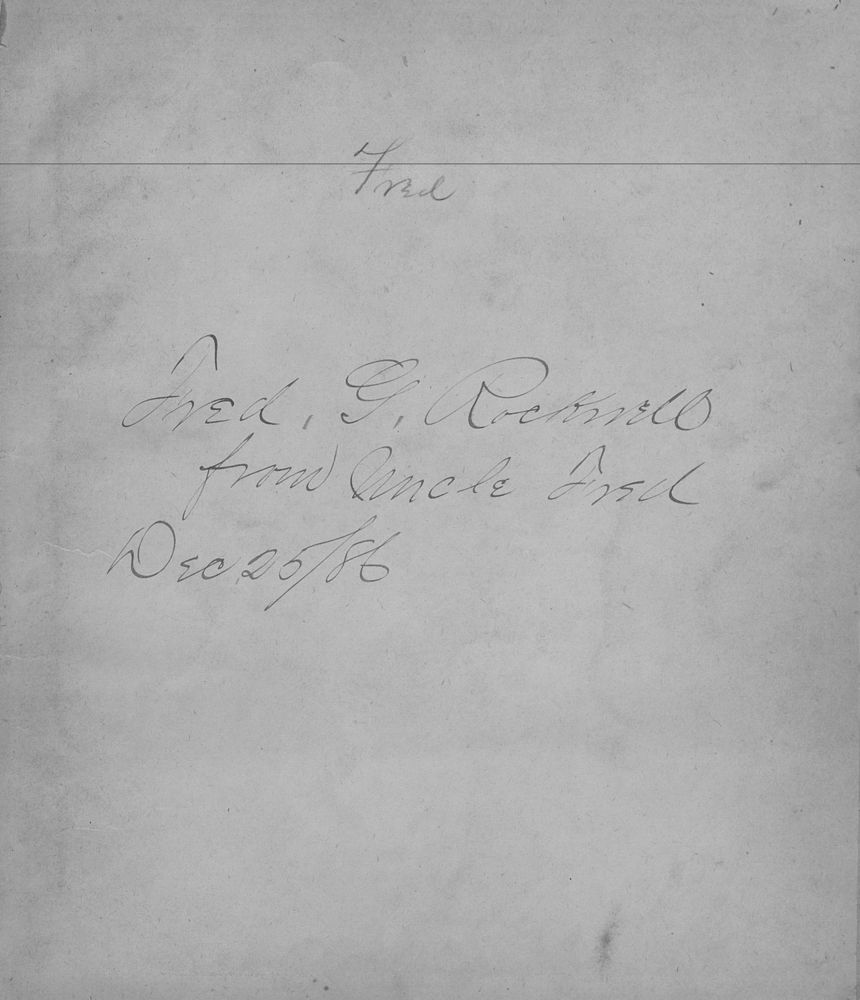 Fred
Fred. G. Rockwell
from Uncle Fred
Dec 25/86